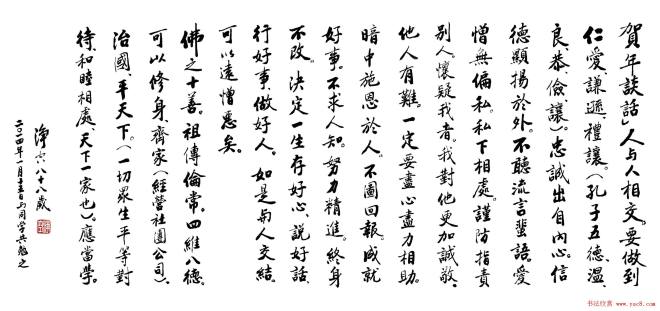 賀年談話」人与人相交。要做到
仁愛、謙遜、禮讓。（孔子五德、温、
良、恭、儉、讓）。忠誠出自內心。信
德顯揚於外。不聽流言蜚語、愛
憎無偏私。私下相處。謹防指責
別人。懷疑我者。我對他更加誠敬、
他人有難。一定要盡心盡力相助。
暗中施恩於人。不圖回報。成就
好事。不求人知。努力精進。終身
不改。決定一生存好心、說好話、
行好事、做好人。如是与人交結。
可以遠憎惡矣。
佛之十善。祖傳倫常。四維八德。
可以修身、齊家（經營社團公司）、
治國、平天下。（一切眾生平等對
待、和睦相處、天下一家也）。應當學。
淨空八十八歲
二〇一四年一月十五日与同學共勉之
书法欣赏 www.yac8.com